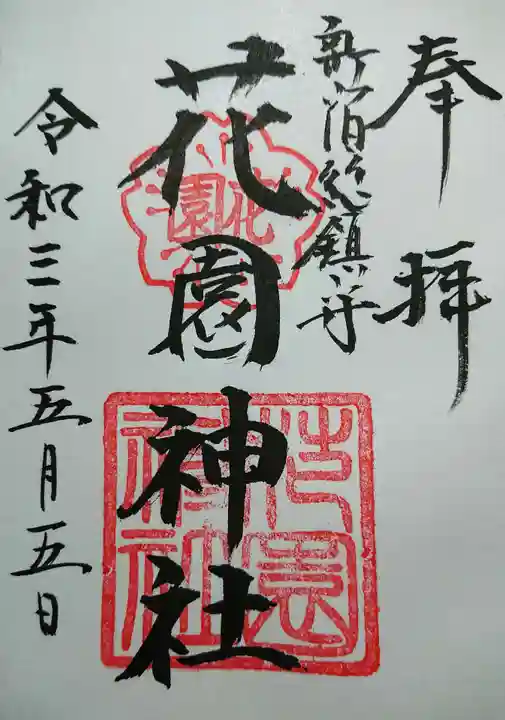 奉拝
新宿総鎮守
花園神社
花園
花園神社
令和三年五月五日